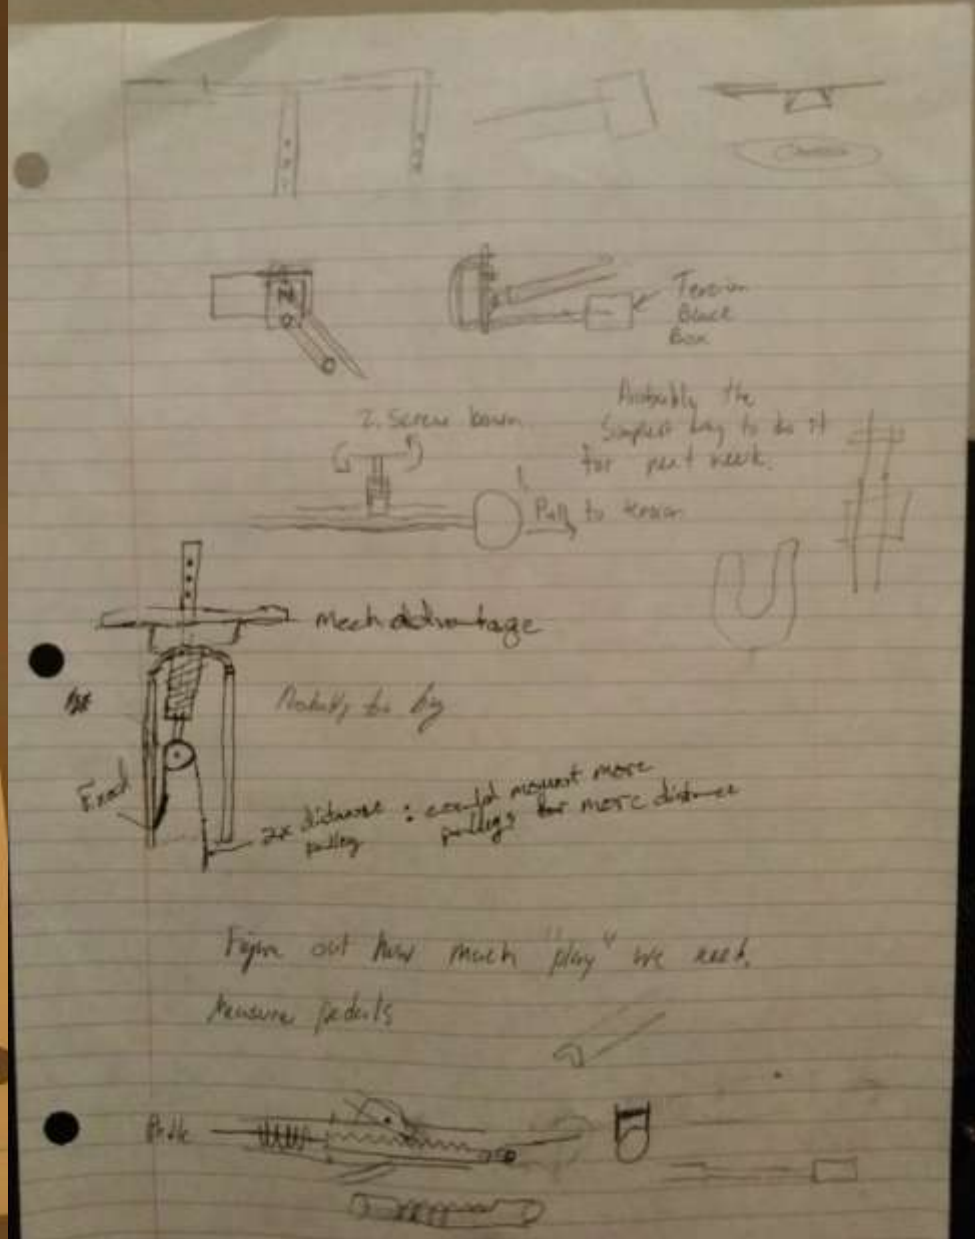 Tension
Black
Box
Probably the
Simplest way to do it
for next week.
2. Screw down
1.
Pull to tension
mech advantage
Probably too big
Fixed
2x distance : could mount more
pulley pulleys for more distance
Figure out how much "play" we need.
Measure pedals